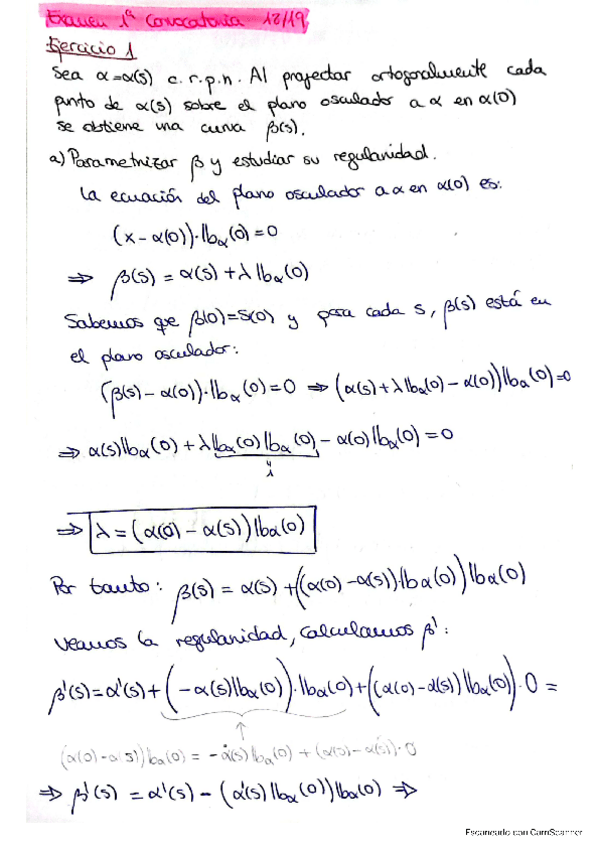 Examen 1ª Convocatoria 18/19
Ejercicio 1
Sea α=α(s) c.r.p.n. Al proyectar ortogonalmente cada
punto de α(s) sobre el plano osculador a α en α(0)
se obtiene una curva β(s).
a) Parametrizar β y estudiar su regularidad.
La ecuación del plano osculador a α en α(0) es:
(x-α(0))·𝕓α(0)=0
⇒ β(s) = α(s)+λ𝕓α(0)
Sabemos que β(0)=s(0) y para cada s, β(s) está en
el plano osculador:
(β(s)-α(0))·𝕓α(0)=0 ⇒ (α(s)+λ𝕓α(0)-α(0))𝕓α(0)=0
⇒ α(s)𝕓α(0)+λ𝕓α(0)𝕓α(0)-α(0)𝕓α(0)=0
⇒ λ=(α(0)-α(s))𝕓α(0)
Por tanto: β(s) = α(s)+((α(0)-α(s))·𝕓α(0))𝕓α(0)
Veamos la regularidad, calculamos β':
β'(s)=α'(s)+(-α(s)𝕓α(0))·𝕓α(0)+((α(0)-α(s))𝕓α(0))·0 =
↑
(α(0)-α(s))𝕓α(0) = -α̇(s)𝕓α(0)+(α(0)-α(s))·0
⇒ β'(s) = α'(s)-(α'(s)𝕓α(0))𝕓α(0) ⇒
Escaneado con CamScanner